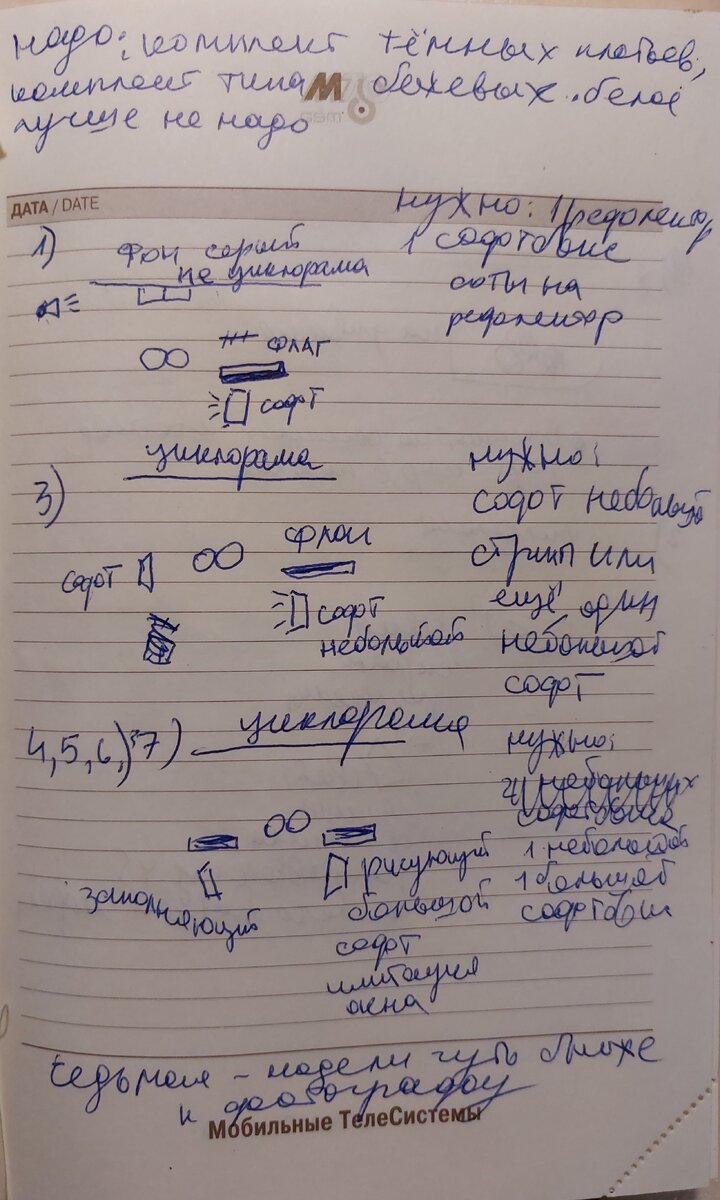 надо: комплект тёмных платьев,
комплект типа бежевых. белое
лучше не надо
ДАТА / DATE
нужно: 1 рефлектор,
1 софтбокс
соты на
рефлектор
1)
фон серый
не циклорама
флаг
софт
циклорама
3)
нужно:
софт небольшой
стрип или
ещё один
небольшой
софт
софт
флаг
софт
небольшой
4, 5, 6, 7)
циклорама
нужно:
1 небольшой
1 большой
софтбокс
заполняющий
рисующий
большой
софт
имитация
окна
седьмая - модели чуть ближе
к фотографу
Мобильные ТелеСистемы